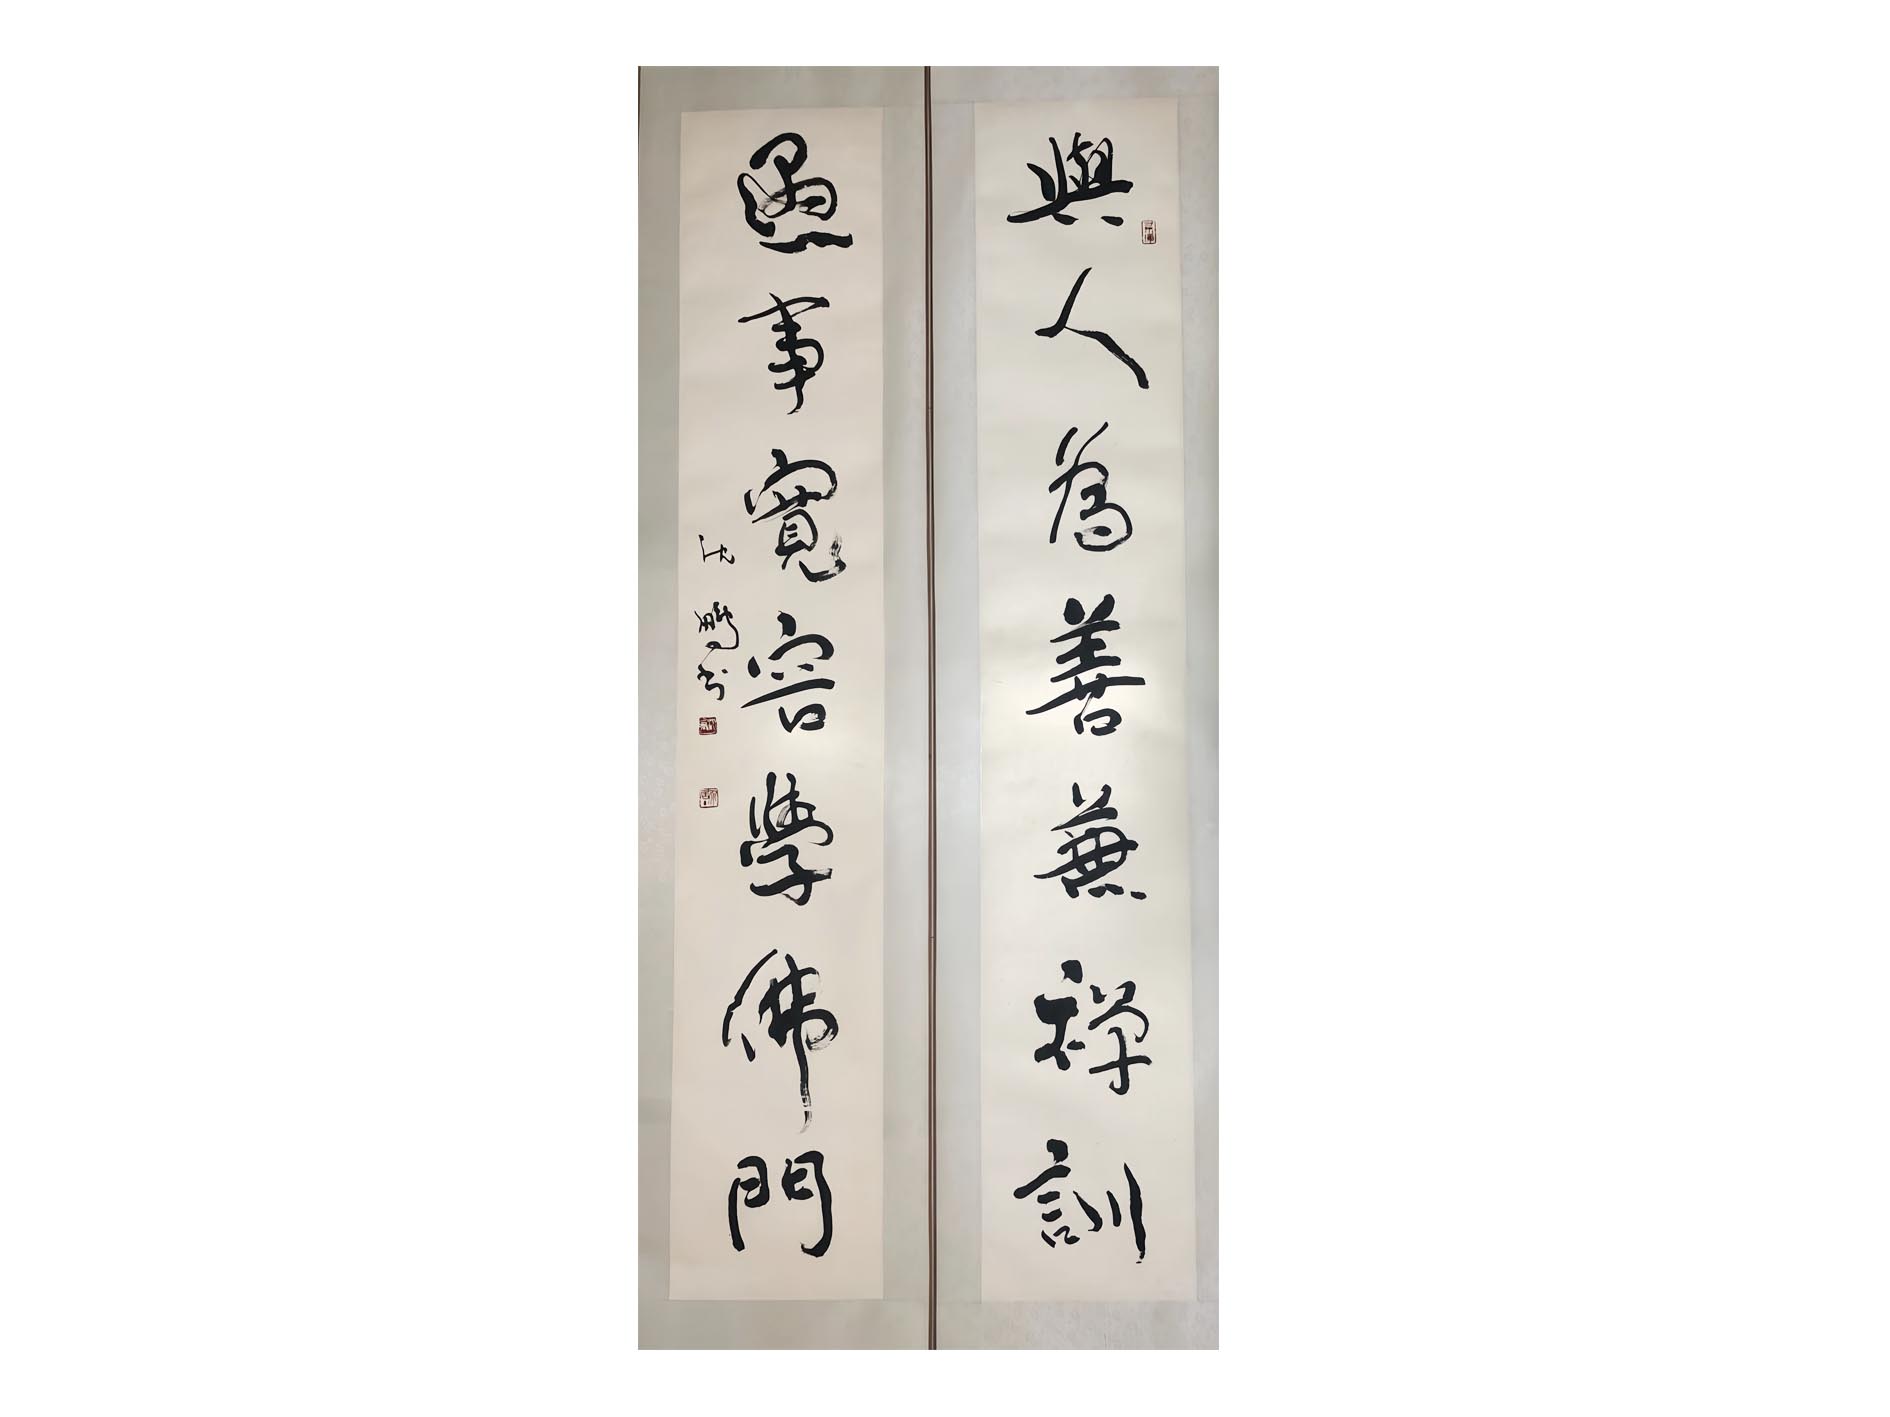 與人為善蕪禪訓
遇事寬容學佛門
沈鵬书